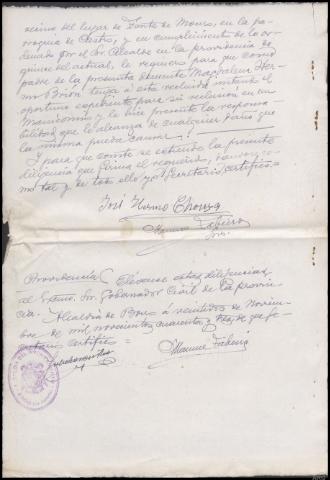 vecino del lugar de Fonte de Mouro, en la pa-
rroquia de Castro, y en cumplimiento de lo or-
denado por el Sr. Alcalde en la providencia de
quince del actual, le requerí para que como
padre de la presunta demente Magdalena Her-
mo Brión tenga a esta recluida instruido el
oportuno expediente para su reclusión en un
Manicomio, y le hice presente la responsa-
bilidad que le alcanza de cualquier daño que
la misma pueda causar.
Y para que conste se extiende la presente
diligencia que firma el requerido, 
 y de todo ello yo, Secretario, certifico.=
José Hermo Chouza
Manuel
Providencia { Elévense estas diligencias
al Excmo. Sr. Gobernador Civil de la provin-
cia. Alcaldía de Boiro á veintidos de Noviem-
bre de mil novecientos cuarenta y tres, de que yo
Secretario certifico=
Manuel